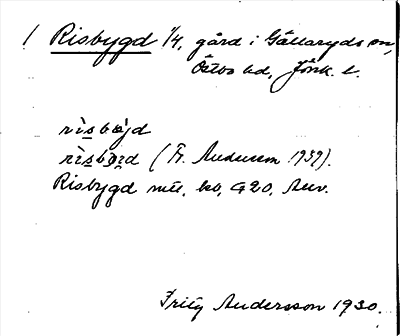 ! Risbygd 1/4, gård i Gällaryds sn,
Östbo hd, Jönk. l.
rìsbøjd
(Fr. Andersson 1939).
Risbygd mtl, kb, G20, Anv.
Fritz Andersson 1930.